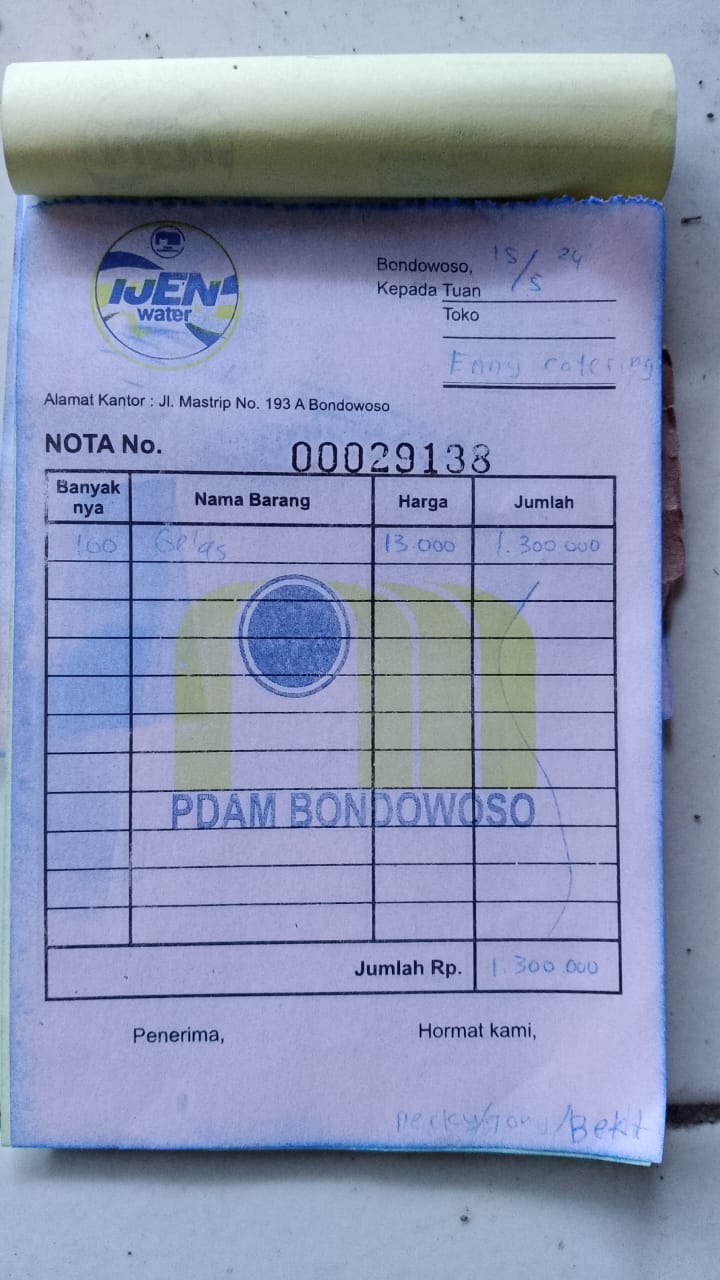 IJEN
water
Bondowoso, 15/5 24
Kepada Tuan
Toko
Enny catering
Alamat Kantor : Jl. Mastrip No. 193 A Bondowoso
NOTA No. 00029138
Banyak nya Nama Barang Harga Jumlah
100 Gelas 13.000 1.300 000
PDAM BONDOWOSO
Jumlah Rp. 1.300.000
Penerima, Hormat kami,
/Bekti